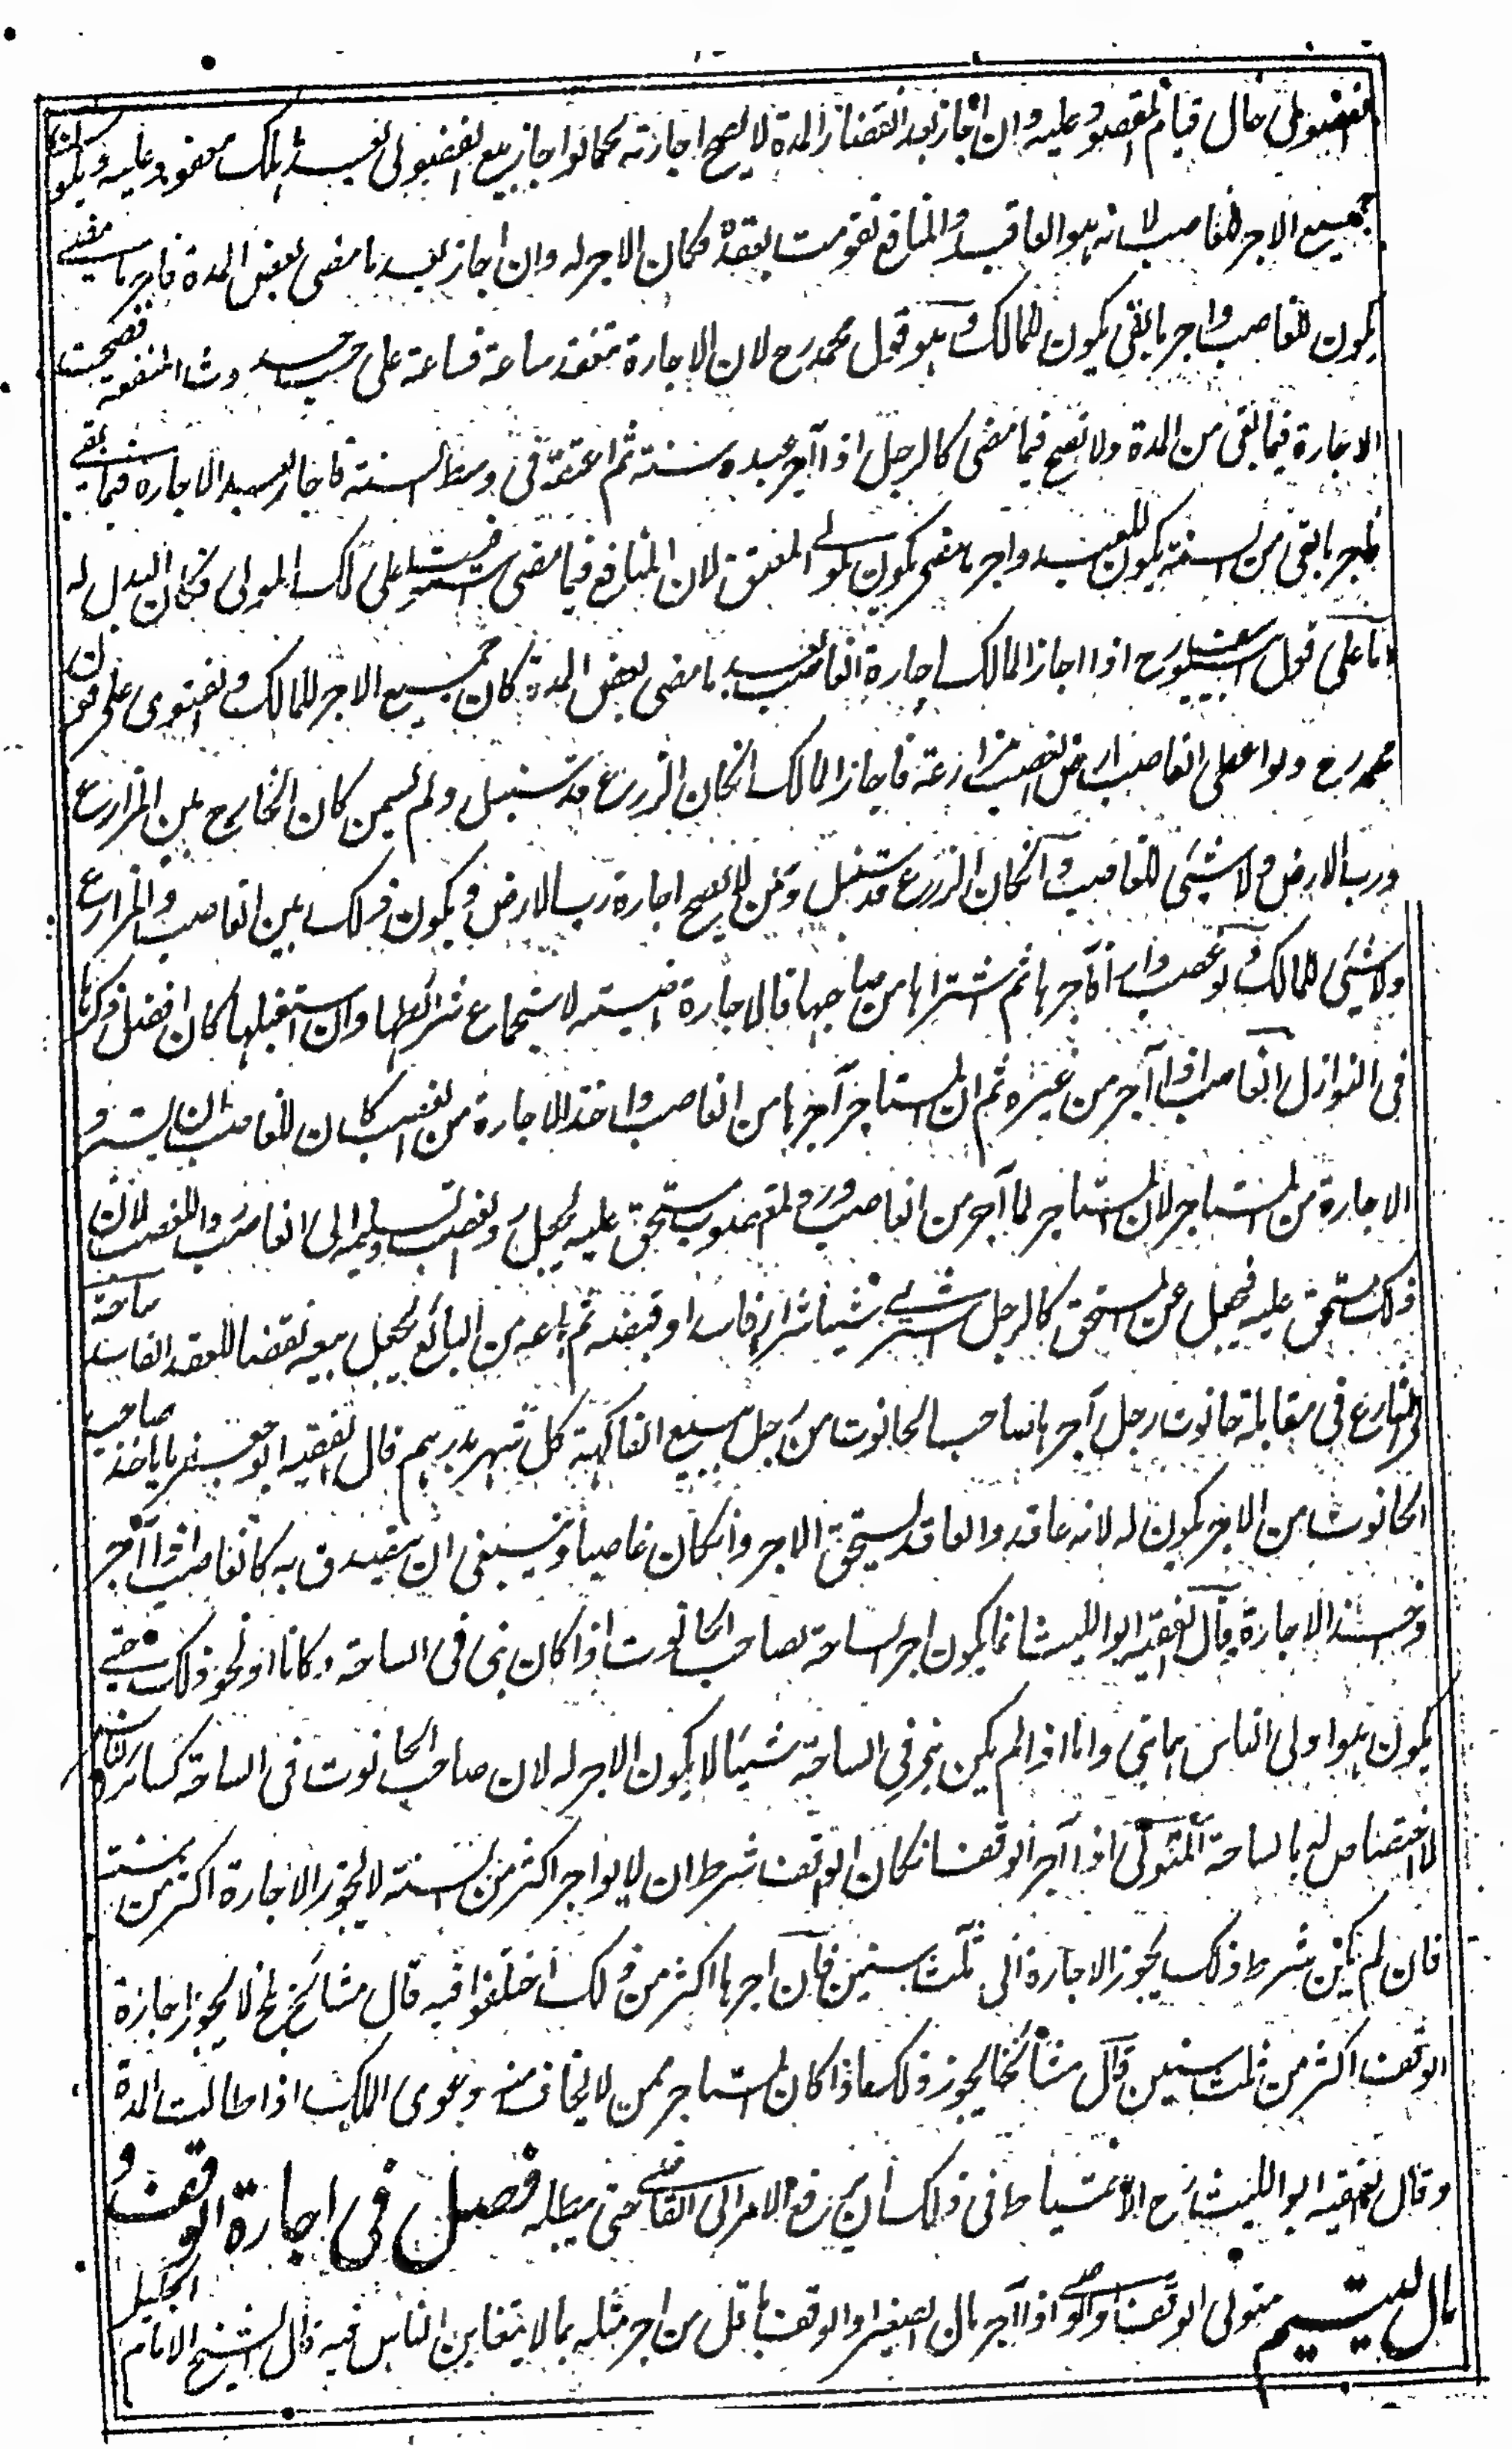 الفضولى حال قيام المعقود عليه وان اجاز بعد انقضاء المدة لا يصح اجازته كما لو اجاز بيع الفضولى بعد هلاك معقود عليه ويكون
جميع الاجر للغاصب لانه هو العاقد والمنافع تقومت بعقده فكان الاجر له وان اجاز بعد ما مضى بعض المدة فاجر ما مضى
يكون للغاصب واجر ما بقى يكون للمالك وهو قول محمد رح لان الاجارة تنعقد ساعة فساعة على حسب حدوث المنفعة فصحت
الاجارة فيما بقى من المدة ولا تصح فيما مضى كالرجل اذا آجر عبده سنة ثم اعتقه فى وسط السنة فاجاز العبد الاجارة فيما بقى
فاجر ما بقى من السنة يكون للعبد واجر ما مضى يكون للمولى المعتق لان المنافع فيما مضى استوفيت على ملك المولى فكان البدل له
اما على قول ابى يوسف رح اذا اجاز المالك اجارة الغاصب بعد ما مضى بعض المدة كان جميع الاجر للمالك والفتوى على قول
محمد رح ولو اعطى الغاصب ارض الغصب مزارعة فاجاز المالك انكان الزرع قد سنبل ولم يسمن كان الخارج بين المزارع
ورب الارض ولا شىء للغاصب وانكان الزرع قد سنبل وسمن لا يصح اجارة رب الارض ويكون ذلك بين الغاصب والمزارع
ولا شىء للمالك ولو غصب دارا فآجرها ثم اشتراها من صاحبها فالاجارة ماضية لاستجماع شرائطها وان استقبلها كان افضل ذكرنا
فى النوازل الغاصب اذا آجر من غيره ثم ان المستاجر آجرها من الغاصب واخذ الاجارة من الغاصب كان للغاصب ان يسترد
الاجارة من المستاجر لان المستاجر لما آجر من الغاصب وردّ المغصوب مستحق عليه يجعل رد الغصب وتسليمه الى الغاصب رد الغصب لان
ذلك مستحق عليه فحصل عن المستحق كالرجل اشترى شيئا شراء فاسدا وقبضه ثم باعه من البائع يجعل بيعه نقضا للعقد الفاسد ساحة
فى الشارع فى مقابلة حانوت رجل آجرها صاحب الحانوت من رجل يبيع الفاكهة كل شهر بدرهم قال الفقيه ابو جعفر ما ياخذ صاحب
الحانوت من الاجر يكون له لانه عاقد والعاقد يستحق الاجر وانكان غاصبا وينبغى ان يتصدق به كالغاصب اذا آجر
واخذ الاجارة قال الفقيه ابو الليث انما يكون اجر الساحة لصاحب الحانوت اذا كان بنى فى الساحة دكانا او نحو ذلك حتى
يكون هو اولى الناس بها بنى واما اذا لم يكن بنى فى الساحة شيئا لا يكون الاجر له لان صاحب الحانوت فى الساحة كسائر الناس
لا اختصاص له بالساحة المتولى اذا آجر الوقف انكان الوقف شرط ان لا يواجر اكثر من سنة لا يجوز الاجارة اكثر من سنة
فان لم يكن شرط ذلك يجوز الاجارة الى ثلث سنين فان اجرها اكثر من ذلك اختلفوا فيه قال مشائخ بلخ لا يجوز اجارة
الوقف اكثر من ثلث سنين وقال مشائخنا يجوز ذلك اذا كان المستاجر ممن لا يخاف منه دعوى الملك اذا طالت المدة
وقال الفقيه ابو الليث رح الاحتياط فى ذلك ان يرفع الامر الى القاضى حتى يبطله فصل فى اجارة الوقف و
مال اليتيم متولى الوقف او الوصى اذا آجر مال الصغير او الوقف باقل من اجر مثله بما لا يتغابن الناس فيه قال الشيخ الامام الجليل